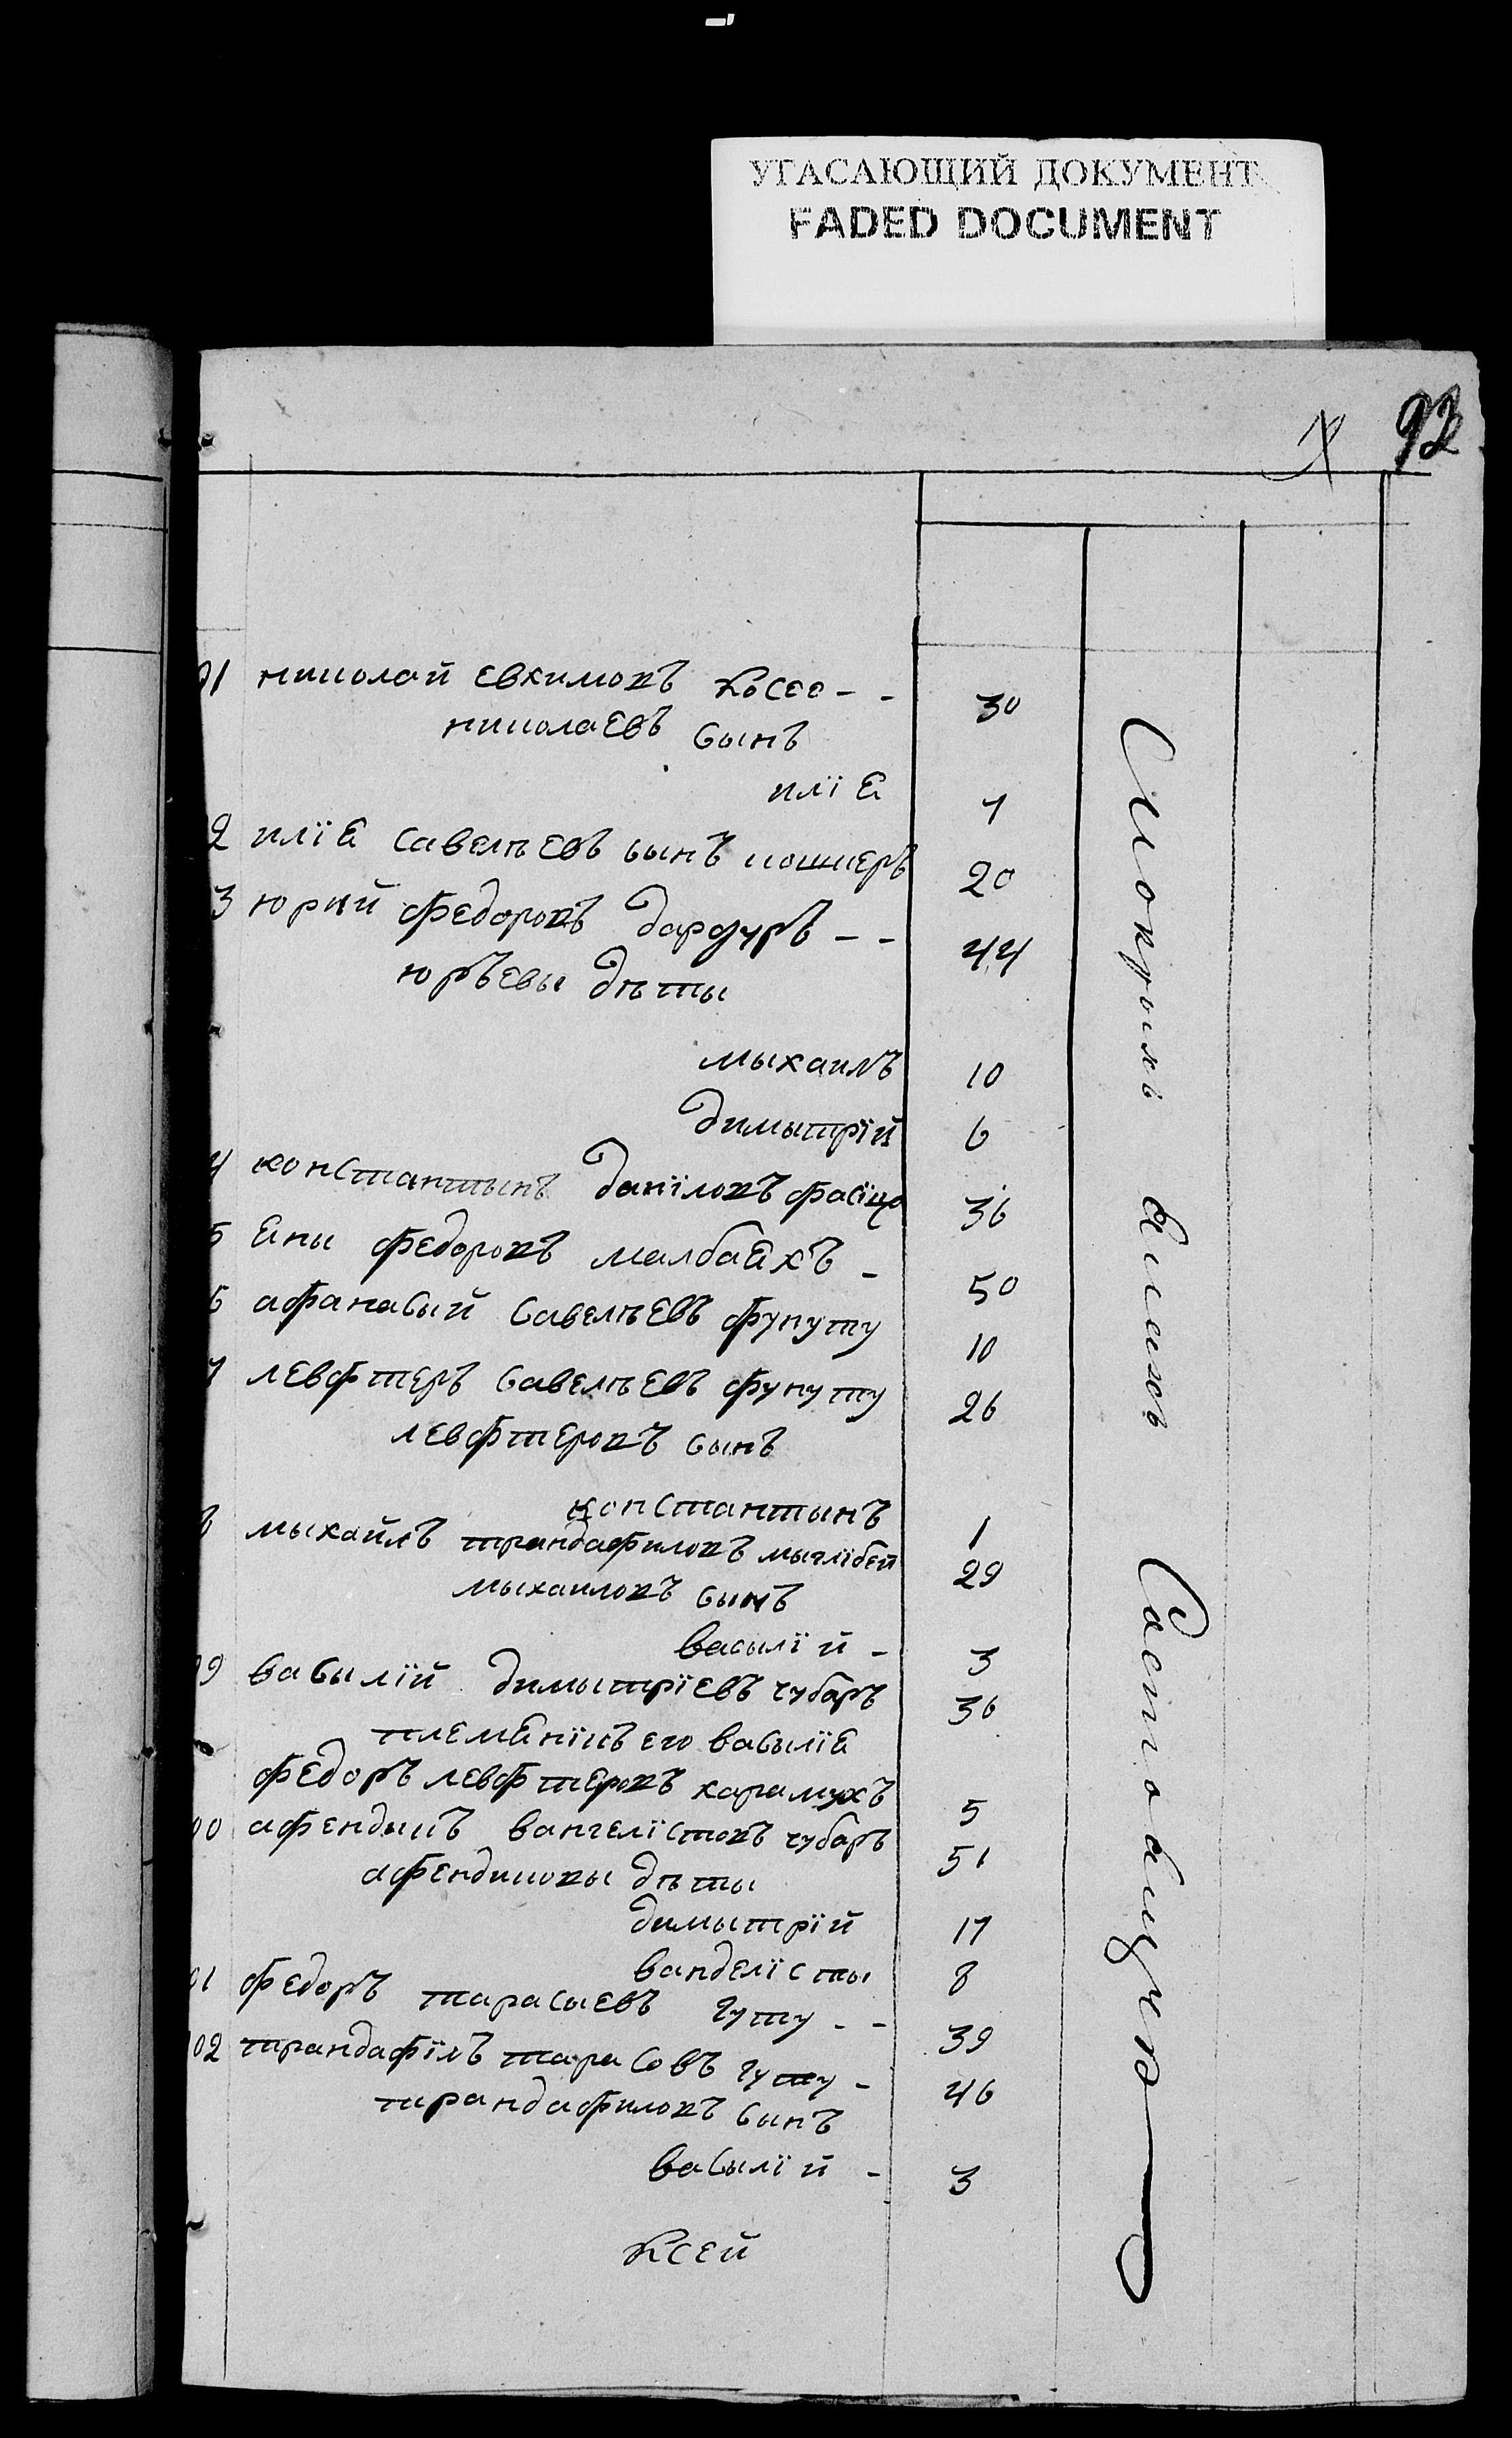 УГАСАЮЩИЙ ДОКУМЕНТ
FADED DOCUMENT
92
91 николай евхимовъ косее - - 30
николаевъ сынъ
илїя 7
2 илїя савелѣевъ сынъ кошкеръ 20
3 юрий федоровъ дардуръ - - 44
юръевы дѣты
мыхаилъ 10
димытрїй 6
4 константынъ данїловъ 36
5 яни федоровъ малбаяхъ - 50
6 афанасый савелѣевъ фунуту 10
7 левфтеръ савелѣевъ фунуту 26
левфтеровъ сынъ
константынъ 1
8 мыхайлъ трандафиловъ мыглїбей 29
мыхаиловъ сынъ
васылїй - 3
99 васылїй димытрїевъ чубаръ 36
племянїкъ его васылїя
федоръ левфтеровъ карамухъ 5
00 афендикъ вангелїстовъ чубаръ 51
афендиковы дѣты
димытрїй 17
ванделїсты 8
01 федоръ тарасыевъ гуту - - 39
102 трандафїлъ тарасовъ гуту - 46
трандафиловъ сынъ
васылїй - 3
ксей